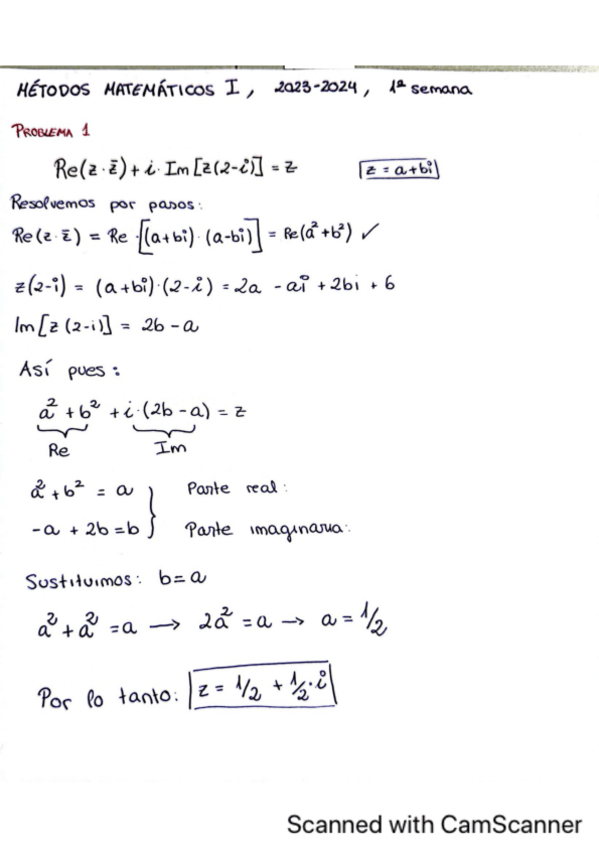 MÉTODOS MATEMÁTICOS I, 2023-2024, 1ª semana
PROBLEMA 1
Re(z·z̄) + i·Im[z(2-i)] = z    z = a+bi
Resolvemos por pasos:
Re(z·z̄) = Re·[(a+bi)·(a-bi)] = Re(a²+b²) ✓
z(2-i) = (a+bi)·(2-i) = 2a - ai + 2bi + b
Im[z(2-i)] = 2b - a
Así pues:
a² + b² + i·(2b - a) = z
Re    Im
a² + b² = a } Parte real:
-a + 2b = b } Parte imaginaria:
Sustituimos: b = a
a² + a² = a → 2a² = a → a = 1/2
Por lo tanto: z = 1/2 + 1/2·i
Scanned with CamScanner